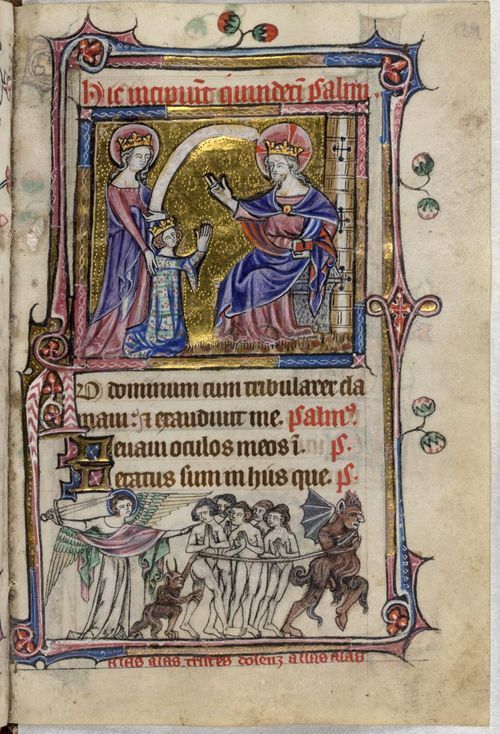 Hic incipiūt quindeci Psalmi.
AD dominum cum tribularer cla
maui: & exaudiuit me. Psalmꝰ.
Leuaui oculos meos i. P.
Letatus sum in hiis que. P.
alas alas tristes dolenz allas alas